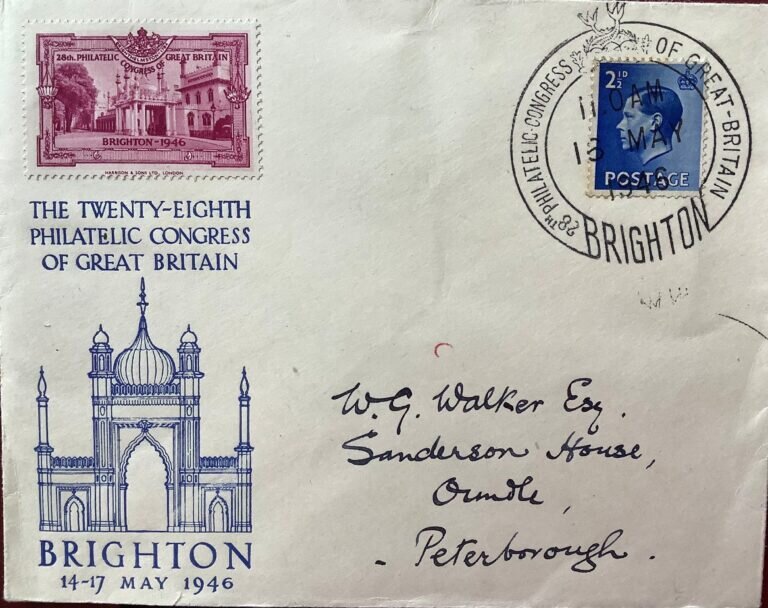 28th. PHILATELIC CONGRESS OF GREAT BRITAIN
BRIGHTON - 1946
HARRISON & SONS LTD. LONDON.
THE TWENTY-EIGHTH
PHILATELIC CONGRESS
OF GREAT BRITAIN
BRIGHTON
14-17 MAY 1946
28TH PHILATELIC-CONGRESS OF GREAT-BRITAIN
BRIGHTON
11.0AM
MAY
1946
2½D
POSTAGE
W.G. Walker Esq.
Sanderson House,
Oundle,
Peterborough.